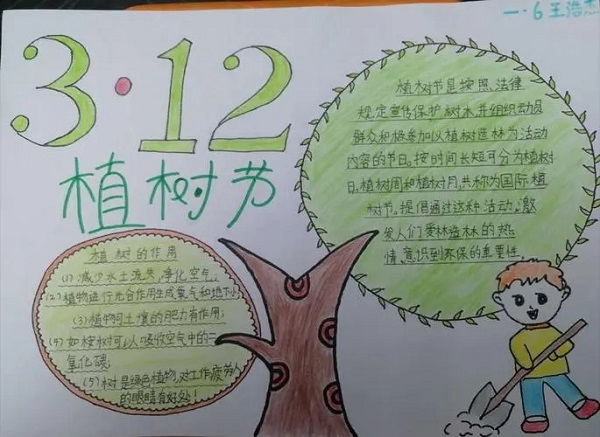 一·6 王浩杰
3·12
植树节
植树节是按照、法律
规定宣传保护树木,并组织动员
群众积极参加以植树造林为活动
内容的节日。按时间长短可分为植树
日、植树周和植树月,共称为国际植
树节。提倡通过这种活动。激
发人们爱林造林的热
情、意识到环保的重要性
植树的作用
(1)减少水土流失、净化空气。
(2)植物进行光合作用生成氧气和地下水
(3)植物对土壤的肥力有作用;
(4)如桉树可以吸收空气中的二
氧化碳
(5)树是绿色植物,对工作疲劳人
的眼睛有好处!